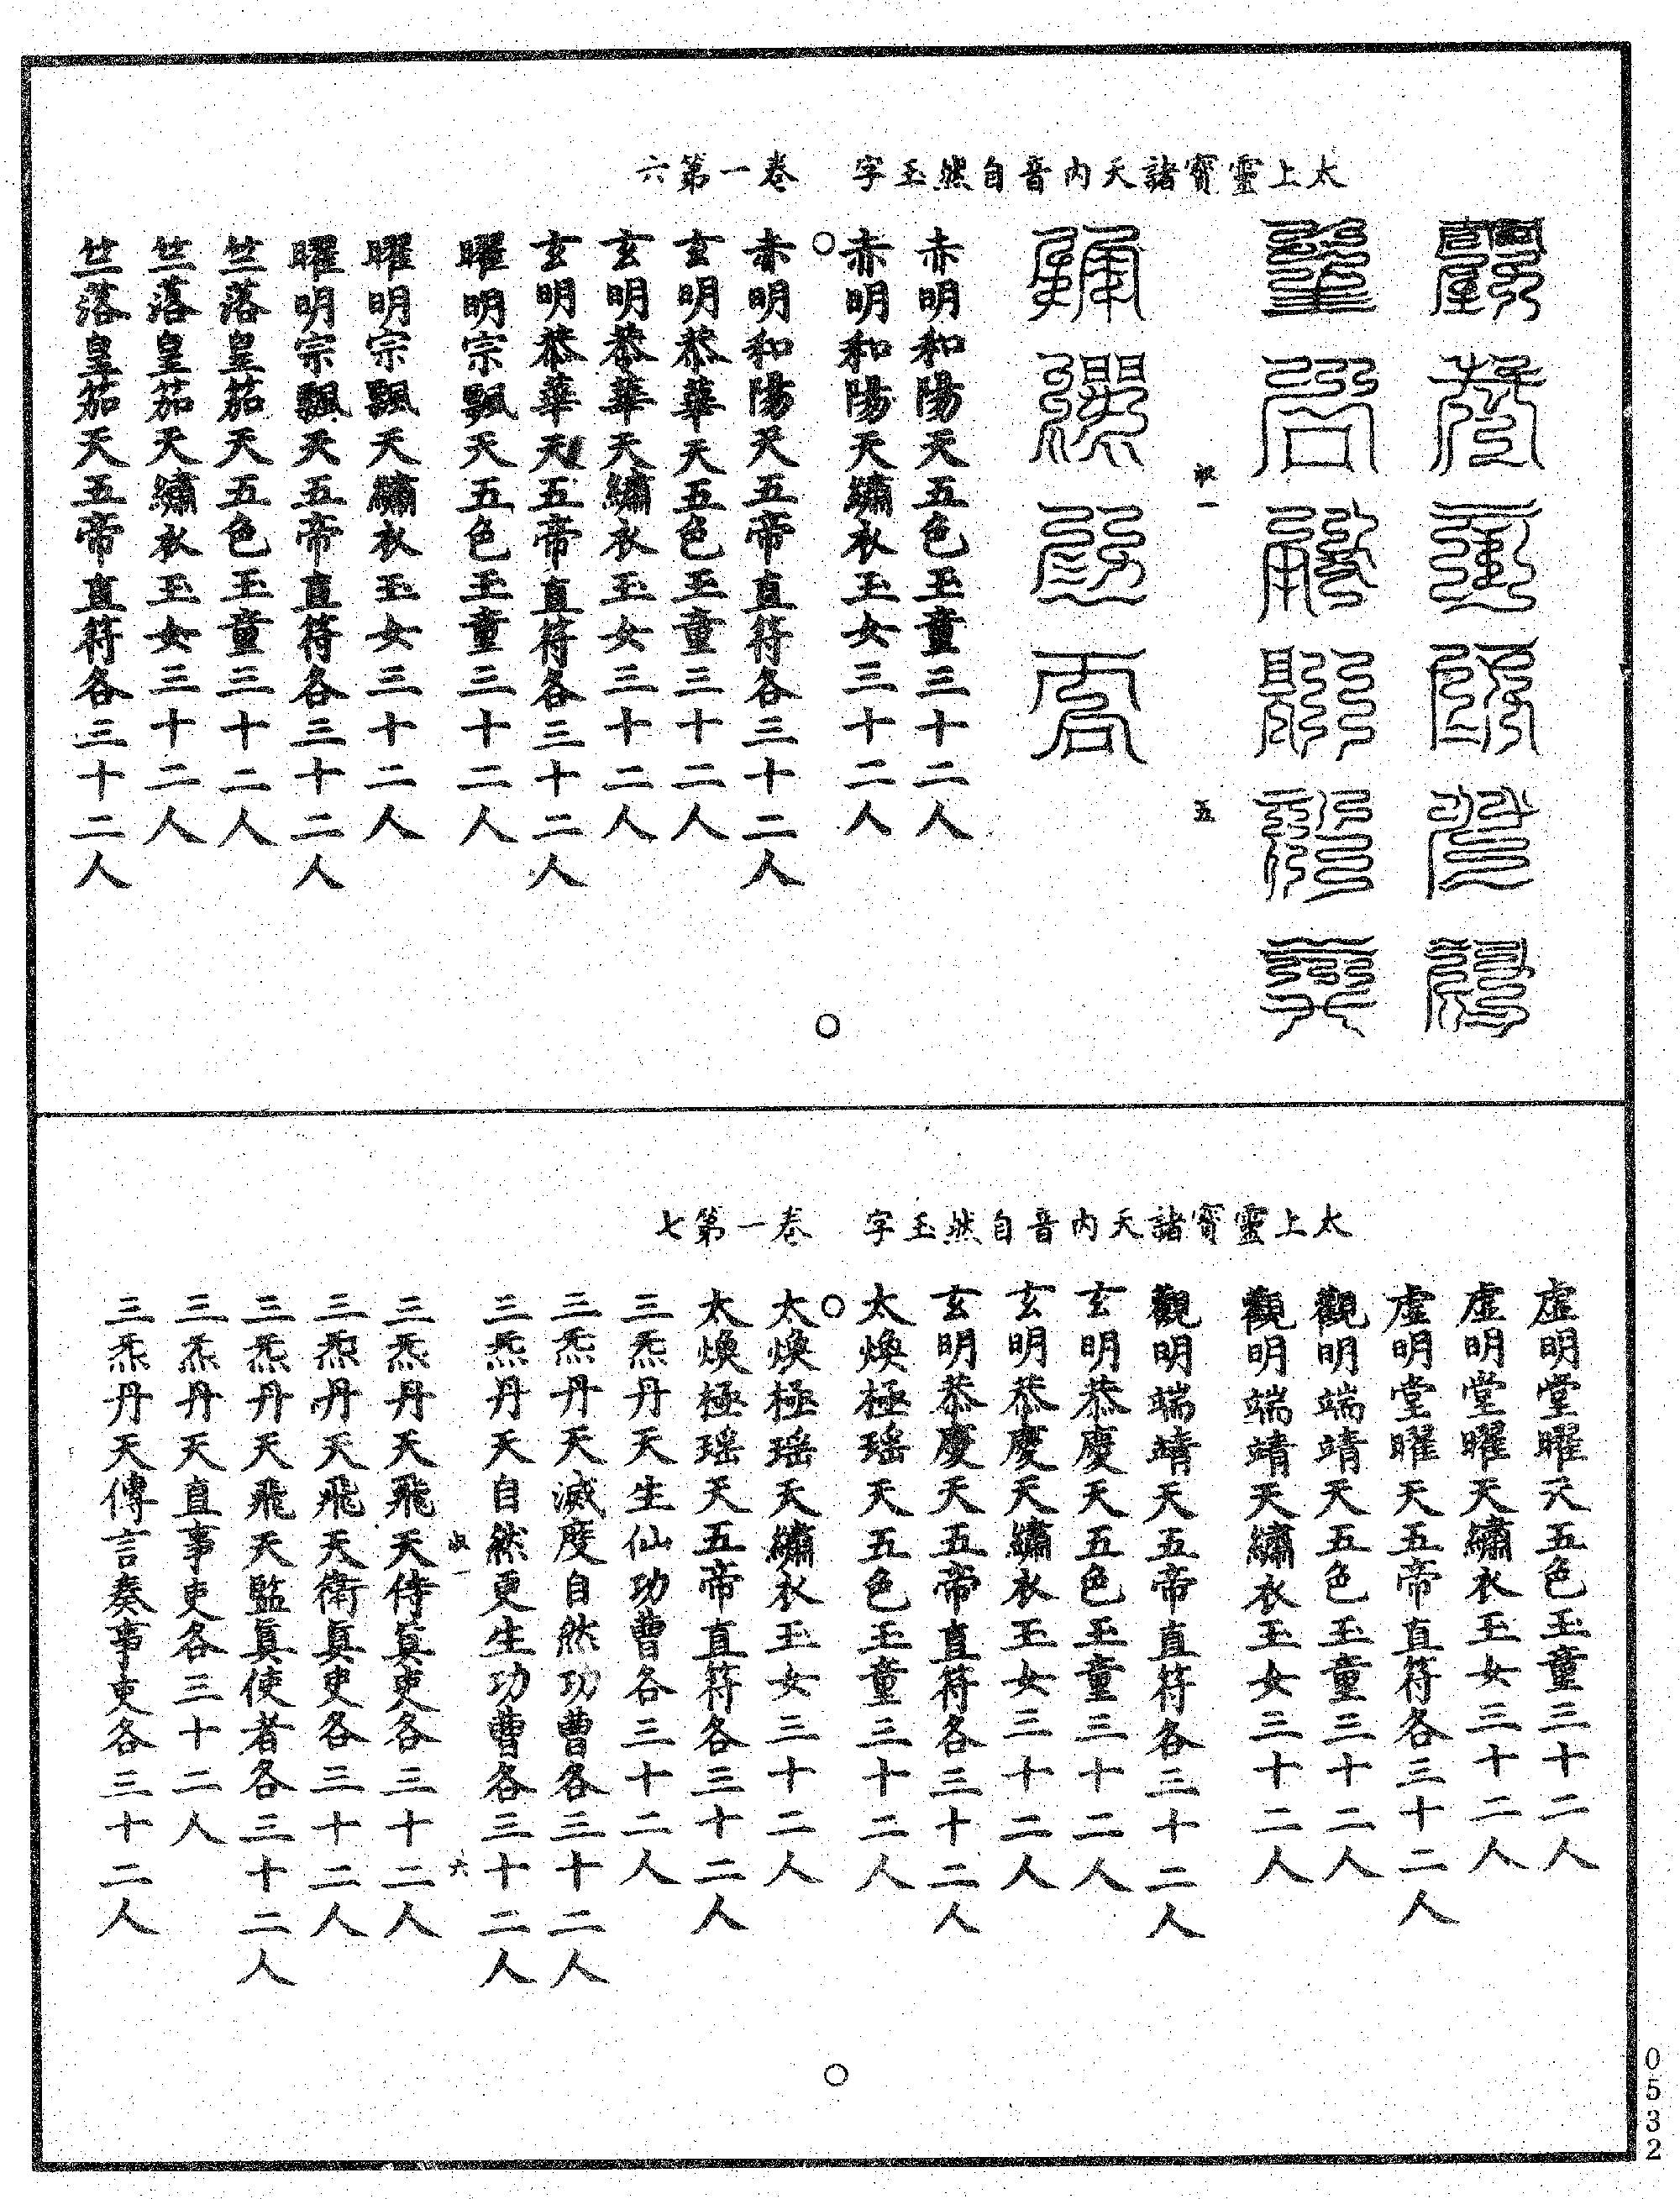 太上靈寶諸天內音自然玉字　卷一第六
一　五
赤明和陽天五色玉童三十二人
赤明和陽天繡衣玉女三十二人
赤明和陽天五帝直符各三十二人
玄明恭華天五色玉童三十二人
玄明恭華天繡衣玉女三十二人
玄明恭華天五帝直符各三十二人
曜明宗飄天五色玉童三十二人
曜明宗飄天繡衣玉女三十二人
曜明宗飄天五帝直符各三十二人
竺落皇笳天五色玉童三十二人
竺落皇笳天繡衣玉女三十二人
竺落皇笳天五帝直符各三十二人
太上靈寶諸天內音自然玉字　卷一第七
虛明堂曜天五色玉童三十二人
虛明堂曜天繡衣玉女三十二人
虛明堂曜天五帝直符各三十二人
觀明端靖天五色玉童三十二人
觀明端靖天繡衣玉女三十二人
觀明端靖天五帝直符各三十二人
玄明恭慶天五色玉童三十二人
玄明恭慶天繡衣玉女三十二人
玄明恭慶天五帝直符各三十二人
太煥極瑤天五色玉童三十二人
太煥極瑤天繡衣玉女三十二人
太煥極瑤天五帝直符各三十二人
三炁丹天生仙功曹各三十二人
三炁丹天滅度自然功曹各三十二人
三炁丹天自然更生功曹各三十二人
一　六
三炁丹天飛天侍真吏各三十二人
三炁丹天飛天衛真吏各三十二人
三炁丹天飛天監真使者各三十二人
三炁丹天直事吏各三十二人
三炁丹天傳言奏事吏各三十二人
0532